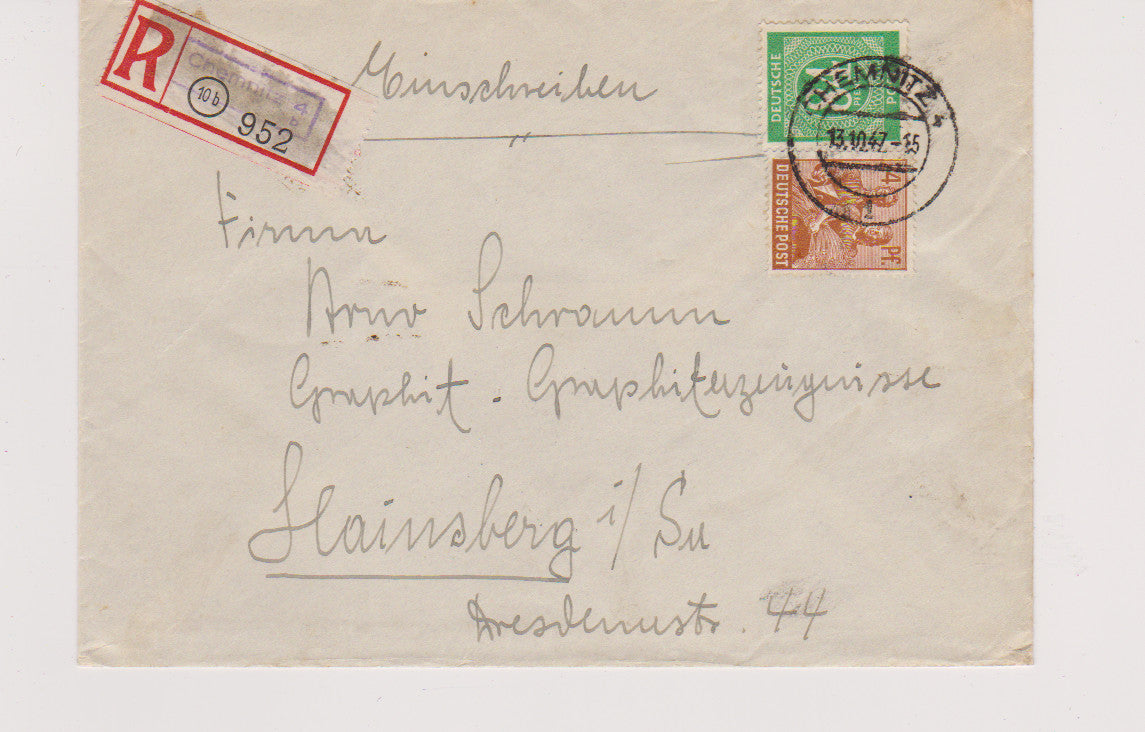 R
Chemnitz 4
b
10b
952
Einschreiben
DEUTSCHE
84
CHEMNITZ 4
13.10.47.-15
DEUTSCHE POST
Pf.
Firma
Arno Schramm
Graphit. Graphiterzeugnisse
Hainsberg i/Sa
Dresdenerstr. 44